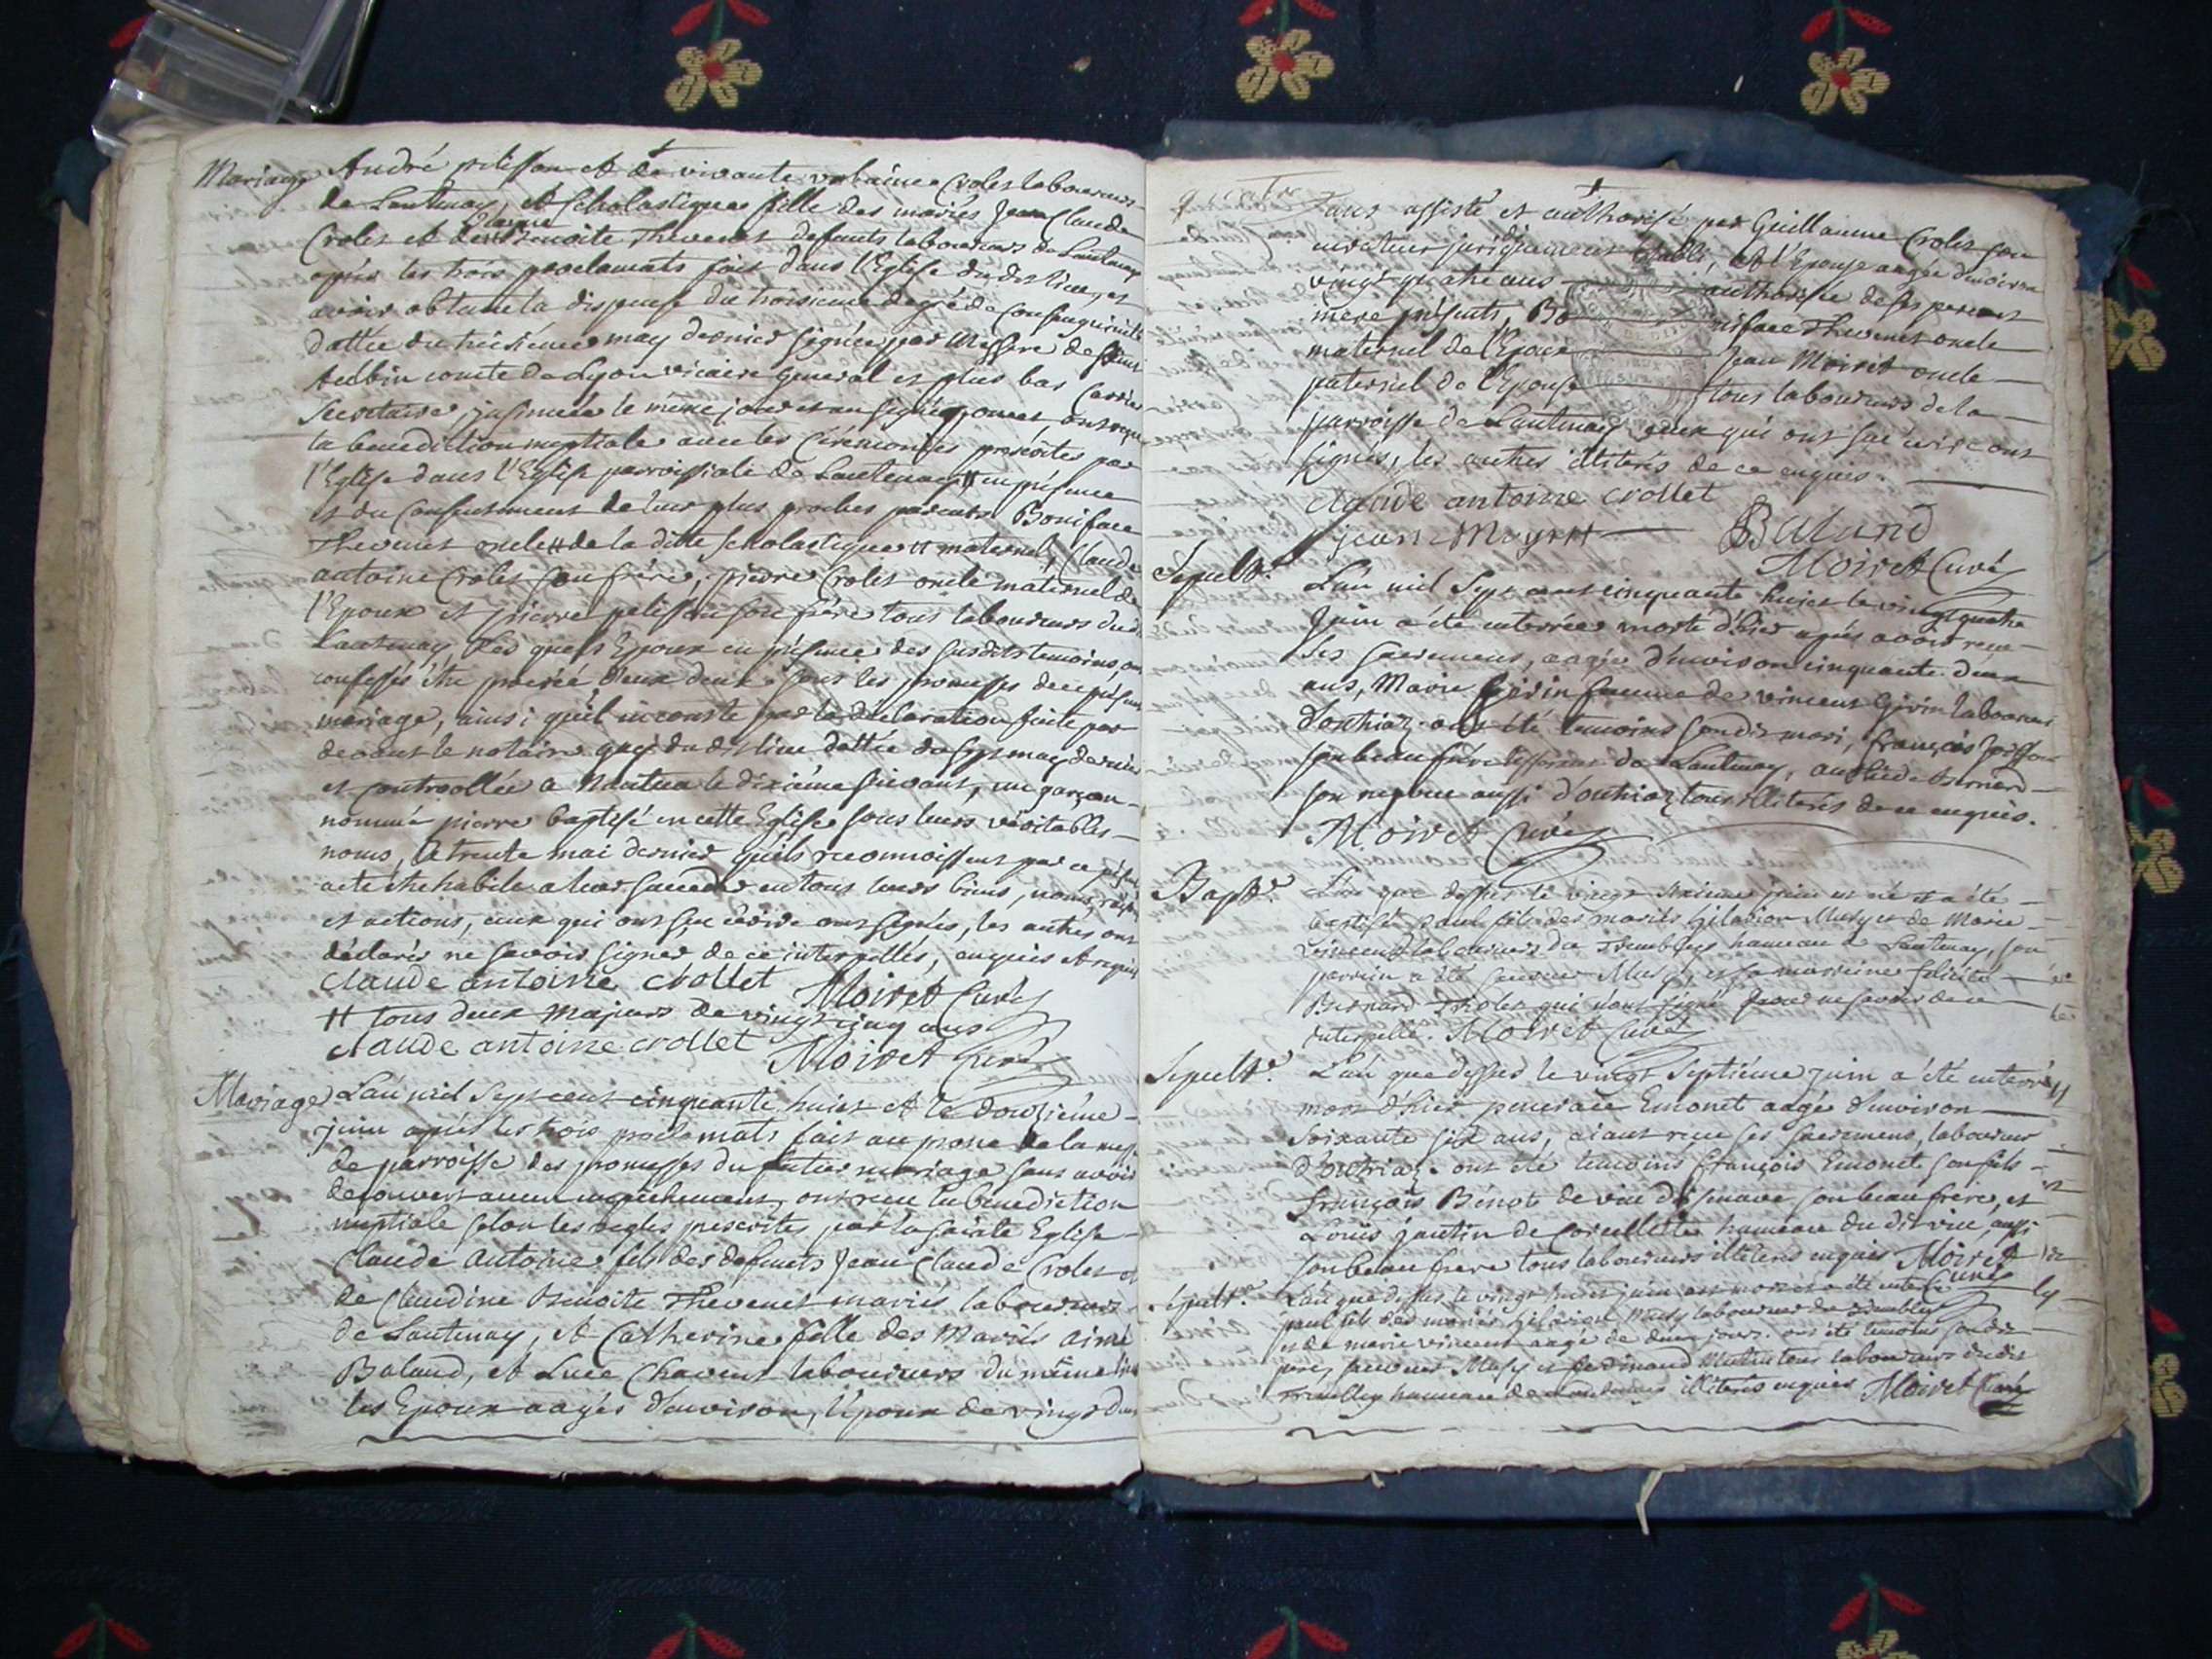 Mariage André pelisson et de vivante urbaine Crolet laboureurs
de Lantenay, et Scholastique fille des mariés Jean Claude
Crolet et Claudine Benoite Thevenet defunts laboureurs de Lantenay
après les trois proclamats fait dans l'Eglise du dit lieu, et
avoir obtenu la dispense du troisieme degré de consanguinité
dattée du treisieme may dernier signée par Messire de saint
Aubin comte de Lyon vicaire general et plus bas
Secretaire, insinuée le meme jour et an signé ont reçu
la benediction nuptiale avec les cérémonies prescrites par
l'Eglise dans l'Eglise parroissiale de Lantenay # en présence
et du consentement de leurs plus proches parents Boniface
Thevenet oncle # de la ditte Scholastique # maternel, Claude
antoine Crolet son frère, pierre Crolet oncle maternel de
l'Epoux et pierre pelisson son frère tous laboureurs du d.
Lantenay, Lesquels Epoux en présence des susdits temoins, ont
confessés être procréé d'eux deux sous les promesses de ce présent
mariage, ainsi qu'il en conste par la déclaration faite par
devant le notaire du dit lieu dattée du sept may dernier
et controollée a Nantua le dixième suivant, un garçon
nommé pierre baptisé en cette Eglise sous leurs véritables
noms, le trente mai dernier qu'ils reconnoissent par ce présent
acte être habile a leur succeder en tous leurs biens, noms,
et actions, ceux qui ont sçu écrire ont signés, les autres ont
déclarés ne savoir signer de ce interpellés, enquis et requis
claude antoine crollet Moiret Curé
# tous deux majeurs de vingt cinq ans
claude antoine crollet Moiret Curé
Mariage L'an mil sept cent cinquante huict et le douzième
juin après les trois proclamats fait au prone de la messe
de parroisse des promesses du futur mariage sans avoir
decouvert aucun empechement, ont reçu la benediction
nuptiale selon les regles prescrites par la sainte Eglise
Claude Antoine fils des defunts Jean Claude Crolet et
de Claudine Benoite Thevenet mariés laboureurs
de Lantenay, et Catherine fille des Mariés aimé
Baland, et Luce Chavent laboureurs du même lieu
les Epoux aagés d'environ, l'époux de vingt deux
ans assisté et authorisé par Guillaume Crolet son
curateur juridiquement établi, et l'Epouse aagée d'environ
vingt quatre ans authorisée de ses pere et
mère présents, Boniface Thevenet oncle
maternel de l'Epoux Jean Moiret oncle
paternel de l'Epouse tous laboureurs de la
parroisse de Lantenay ceux qui ont sçu écrire ont
signés, les autres illiterés de ce enquis.
claude antoine crollet
jean Moyret Baland
Moiret Curé
Sepult.e L'an mil Sept cent cinquante huict le vingt quatre
Juin a été enterrée morte d'hier après avoir reçu
ses sacremens, aagée d'environ cinquante deux
ans, Marie femme de vincent Girin laboureur
d'outriaz ont été temoins son dit mari, françois
son beau frère de Lantenay, Bernard
son neveu aussi d'outriaz tous illiterés de ce enquis.
Moiret Curé
Bapt.e L'an que dessus le vingt sixieme juin est né et a été
baptisé paul fils des mariés hilarion Musy et de Marie
vincent laboureurs du Tremblay hameau de Lantenay, son
parrain a été Musy, et sa marreine felicité
Bernard qui n'ont signé pour ne savoir de ce
interpellé. Moiret Curé
Sepult.e L'an que dessus le vingt Septiéme juin a été enterré
mort d'hier pancrace Emonet aagé d'environ
soixante six ans, aiant reçu ses sacremens, laboureur
d'outriaz. ont été temoins françois Emonet son fils
françois Bénot de vieu d'isenave son beau frère, et
Louis jantin de Corcellette hameau du dit vieu, aussi
son beau frere tous laboureurs illiterés enquis Moiret
Curé
Sepult.e L'an que dessus le vingt huict juin est mort et a été enterré
paul fils des mariés hilarion Musy laboureur du Tremblay
et de marie vincent aagé de deux jours. ont été temoins son dit
pere, Musy et ferdinand tous laboureurs du dit
Tremblay hameau de Lantenay illiterés enquis Moiret Curé